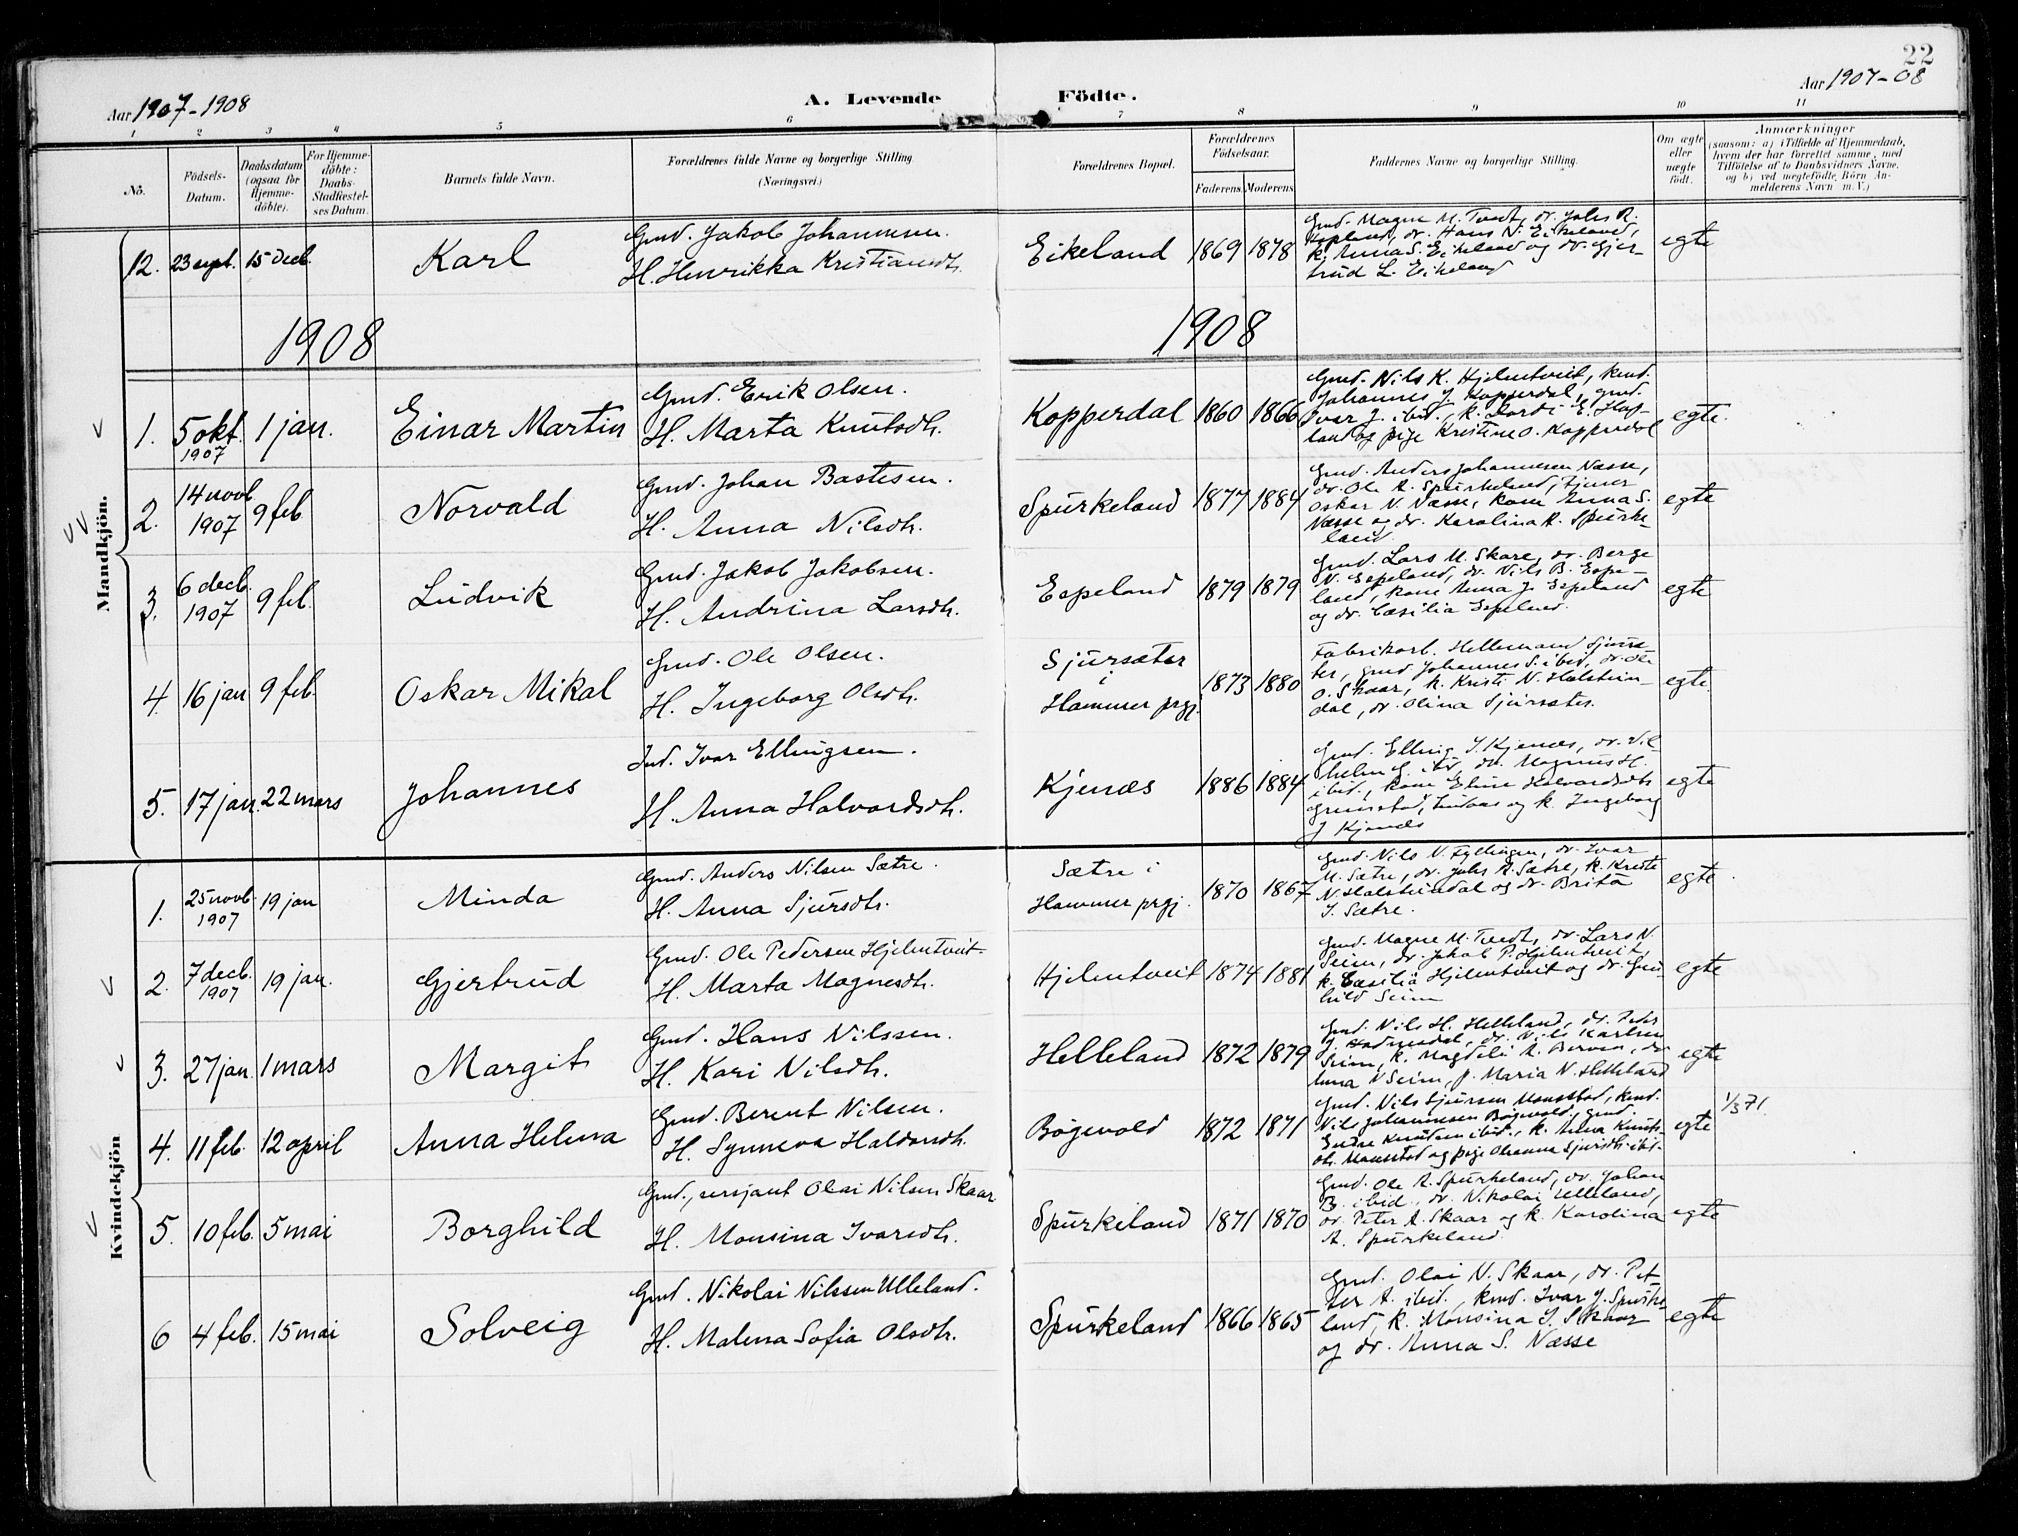 22
Aar 1907-1908
A. Levende Födte.
Aar 1907-08
1 2 3 4 5 6 7 8 9 10 11
No.
Födsels-Datum.
Daabsdatum (ogsaa for Hjemme-döbte).
For Hjemme-döbte: Daabs-Stadfæstel-ses Datum.
Barnets fulde Navn.
Forældrenes fulde Navne og borgerlige Stilling (Næringsvei.)
Forældrenes Bopæl.
Forældrenes Födselsaar.
Faderens. Moderens.
Faddernes Navne og borgerlige Stilling.
Om ægte eller uægte födt.
Anmærkninger
(saasom: a) i Tilfælde af Hjemmedaab,
hvem der har forrettet samme, med
Tilföielse af to Daabsvidners Navne,
og b) ved uegtefödte Börn An-
melderens Navn m. V.)
Mandkjön.
12. 23 sept. 15 decb. Karl
Gmd. Jakob Johannesen.
H. Henrikka Kristiansdtr.
Eikeland 1869 1878
Gmd. Magne M. Tvedt, dr. Johs R.
Hopland, dr. Hans N. Eikeland,
k. Anna S. Eikeland og dr. Gjer-
trud L. Eikeland
egte
1908 1908
1. 5 okt. 1907 1 jan. Einar Martin
Gmd. Erik Olsen.
H. Marta Knutsdtr.
Kopperdal 1860 1866
Gmd. Nils K. Hjelmtveit, kmd.
Johannes J. Kopperdal, gmd.
Ivar J. ibid., k. Dordi E. Hop-
land og pige Kristine O. Kopperdal
egte.
2. 14 novb. 1907 9 feb. Norvald
Gmd. Johan Bastesen.
H. Anna Nilsdtr.
Spurkeland 1877 1884
Gmd. Anders Johannesen Næsse,
dr. Ole A. Spurkeland, tjener
Oskar N. Næsse, kone Anna S.
Næsse og dr. Karolina A. Spurke-
land.
egte
3. 6 decb. 1907 9 feb. Ludvik
Gmd. Jakob Jakobsen.
H. Andrina Larsdtr.
Espeland 1879 1879
Gmd. Lars M. Skare, dr. Berge
N. Espeland, dr. Nils B. Espe-
land, kone Anna J. Espeland
og dr. Cæsilia Espeland.
egte
4. 16 jan 9 feb. Oskar Mikal
Gmd. Ole Olsen.
H. Ingeborg Olsdtr.
Sjursæter
i
Hammer prgj. 1873 1880
Fabrikarb. Hellemand Sjursæ-
ter, gmd Johannes S. ibid, dr. Ole
O. Skaar, k. Kristi N. Halstein-
dal, dr. Olina Sjursæter.
egte.
5. 17 jan. 22 mars Johannes
Ind. Ivar Ellingsen.
H. Anna Halvardsdtr.
Kjenæs 1886 1884
Gmd. Elling I. Kjenæs, dr. Vil-
helm E. ibid, dr. Magnus H.
ibid., kone Eline Halvardsdtr.
Grimstad, Lindaas og k. Ingeborg
J Kjenæs
egte
Kvindekjön
1. 25 novb. 1907 19 jan Minda
Gmd. Anders Nilsen Sætre.
H. Anna Sjursdtr.
Sætre i
Hammer prgj. 1870 1867
Gmd. Nils N. Fyllingen, dr. Ivar
M. Sætre, dr. Johs A. Sætre, k. Kristi
N. Halsteindal og dr. Brita
I. Sætre.
egte.
2. 7 decb. 1907 19 jan. Gjertrud
Gmd. Ole Pedersen Hjelmtveit
H. Marta Magnesdtr.
Hjelmtveit 1874 1881
Gmd. Magne M. Tvedt, dr. Lars N.
Seim, dr. Jakob P. Hjelmtveit
k. Cæsilia Hjelmtveit og dr. Gun-
hild Seim
egte
3. 27 jan. 1 mars Margit
Gmd. Hans Nilssen.
H. Kari Nilsdtr.
Helleland 1872 1879
Gmd. Nils H. Helleland, dr. Peter
J. dr. Nils Karlsen
Seim, k. Magdeli A. Berven, dr.
Anna N Seim, p. Maria N. Helleland
egte
4. 11 feb. 12 april Anna Helena
Gmd. Berent Nilsen.
H. Synneva Haldandtr.
Bøgevold 1872 1871
Gmd. Nils Sjursen Monsstad, kmd.
Nils Johannesen Bøgevold, gmd.
Endre Knudsen ibid., k. Anna Knuts-
dtr. Monsstad og pige Olianna Sjursdtr. ibid.
egte 1/3 71.
5. 10 feb. 5 mai Borghild
Gmd., sersjant Olai Nilsen Skaar
H. Monsina Ivarsdtr.
Spurkeland 1871 1870
Gmd. Ole A. Spurkeland, dr. Johan
B. ibid., dr. Nikolai Ulleland,
dr. Peter A. Skaar og k. Karolina
A. Spurkeland
egte
6 4 feb. 15 mai Solveig
Gmd. Nikolai Nilssen Ulleland.
H. Malena Sofia Olsdtr.
Spurkeland 1866 1865
Gmd. Olai N. Skaar, dr. Pet-
ter A. ibid., kmd. Ivar J. Spurke-
land, k. Monsina I. Skaar
og dr. Anna S. Næsse
egte